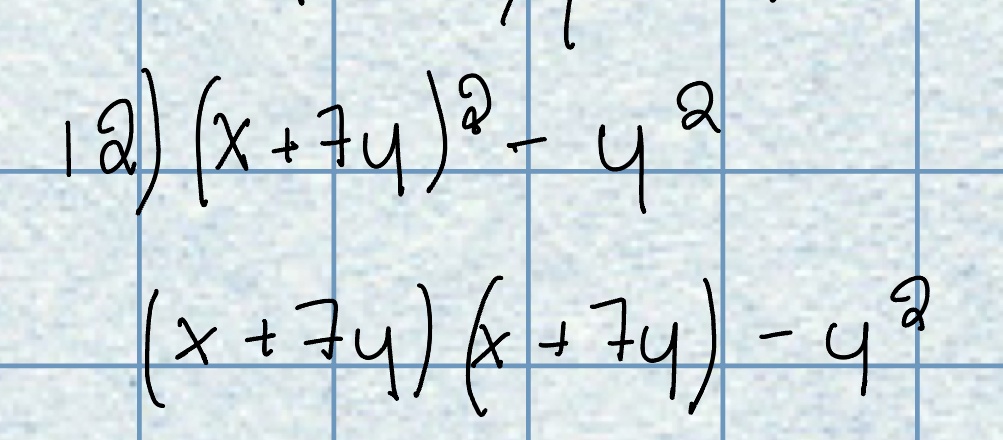 12) (x + 7y)² - y²
(x + 7y)(x + 7y) - y²